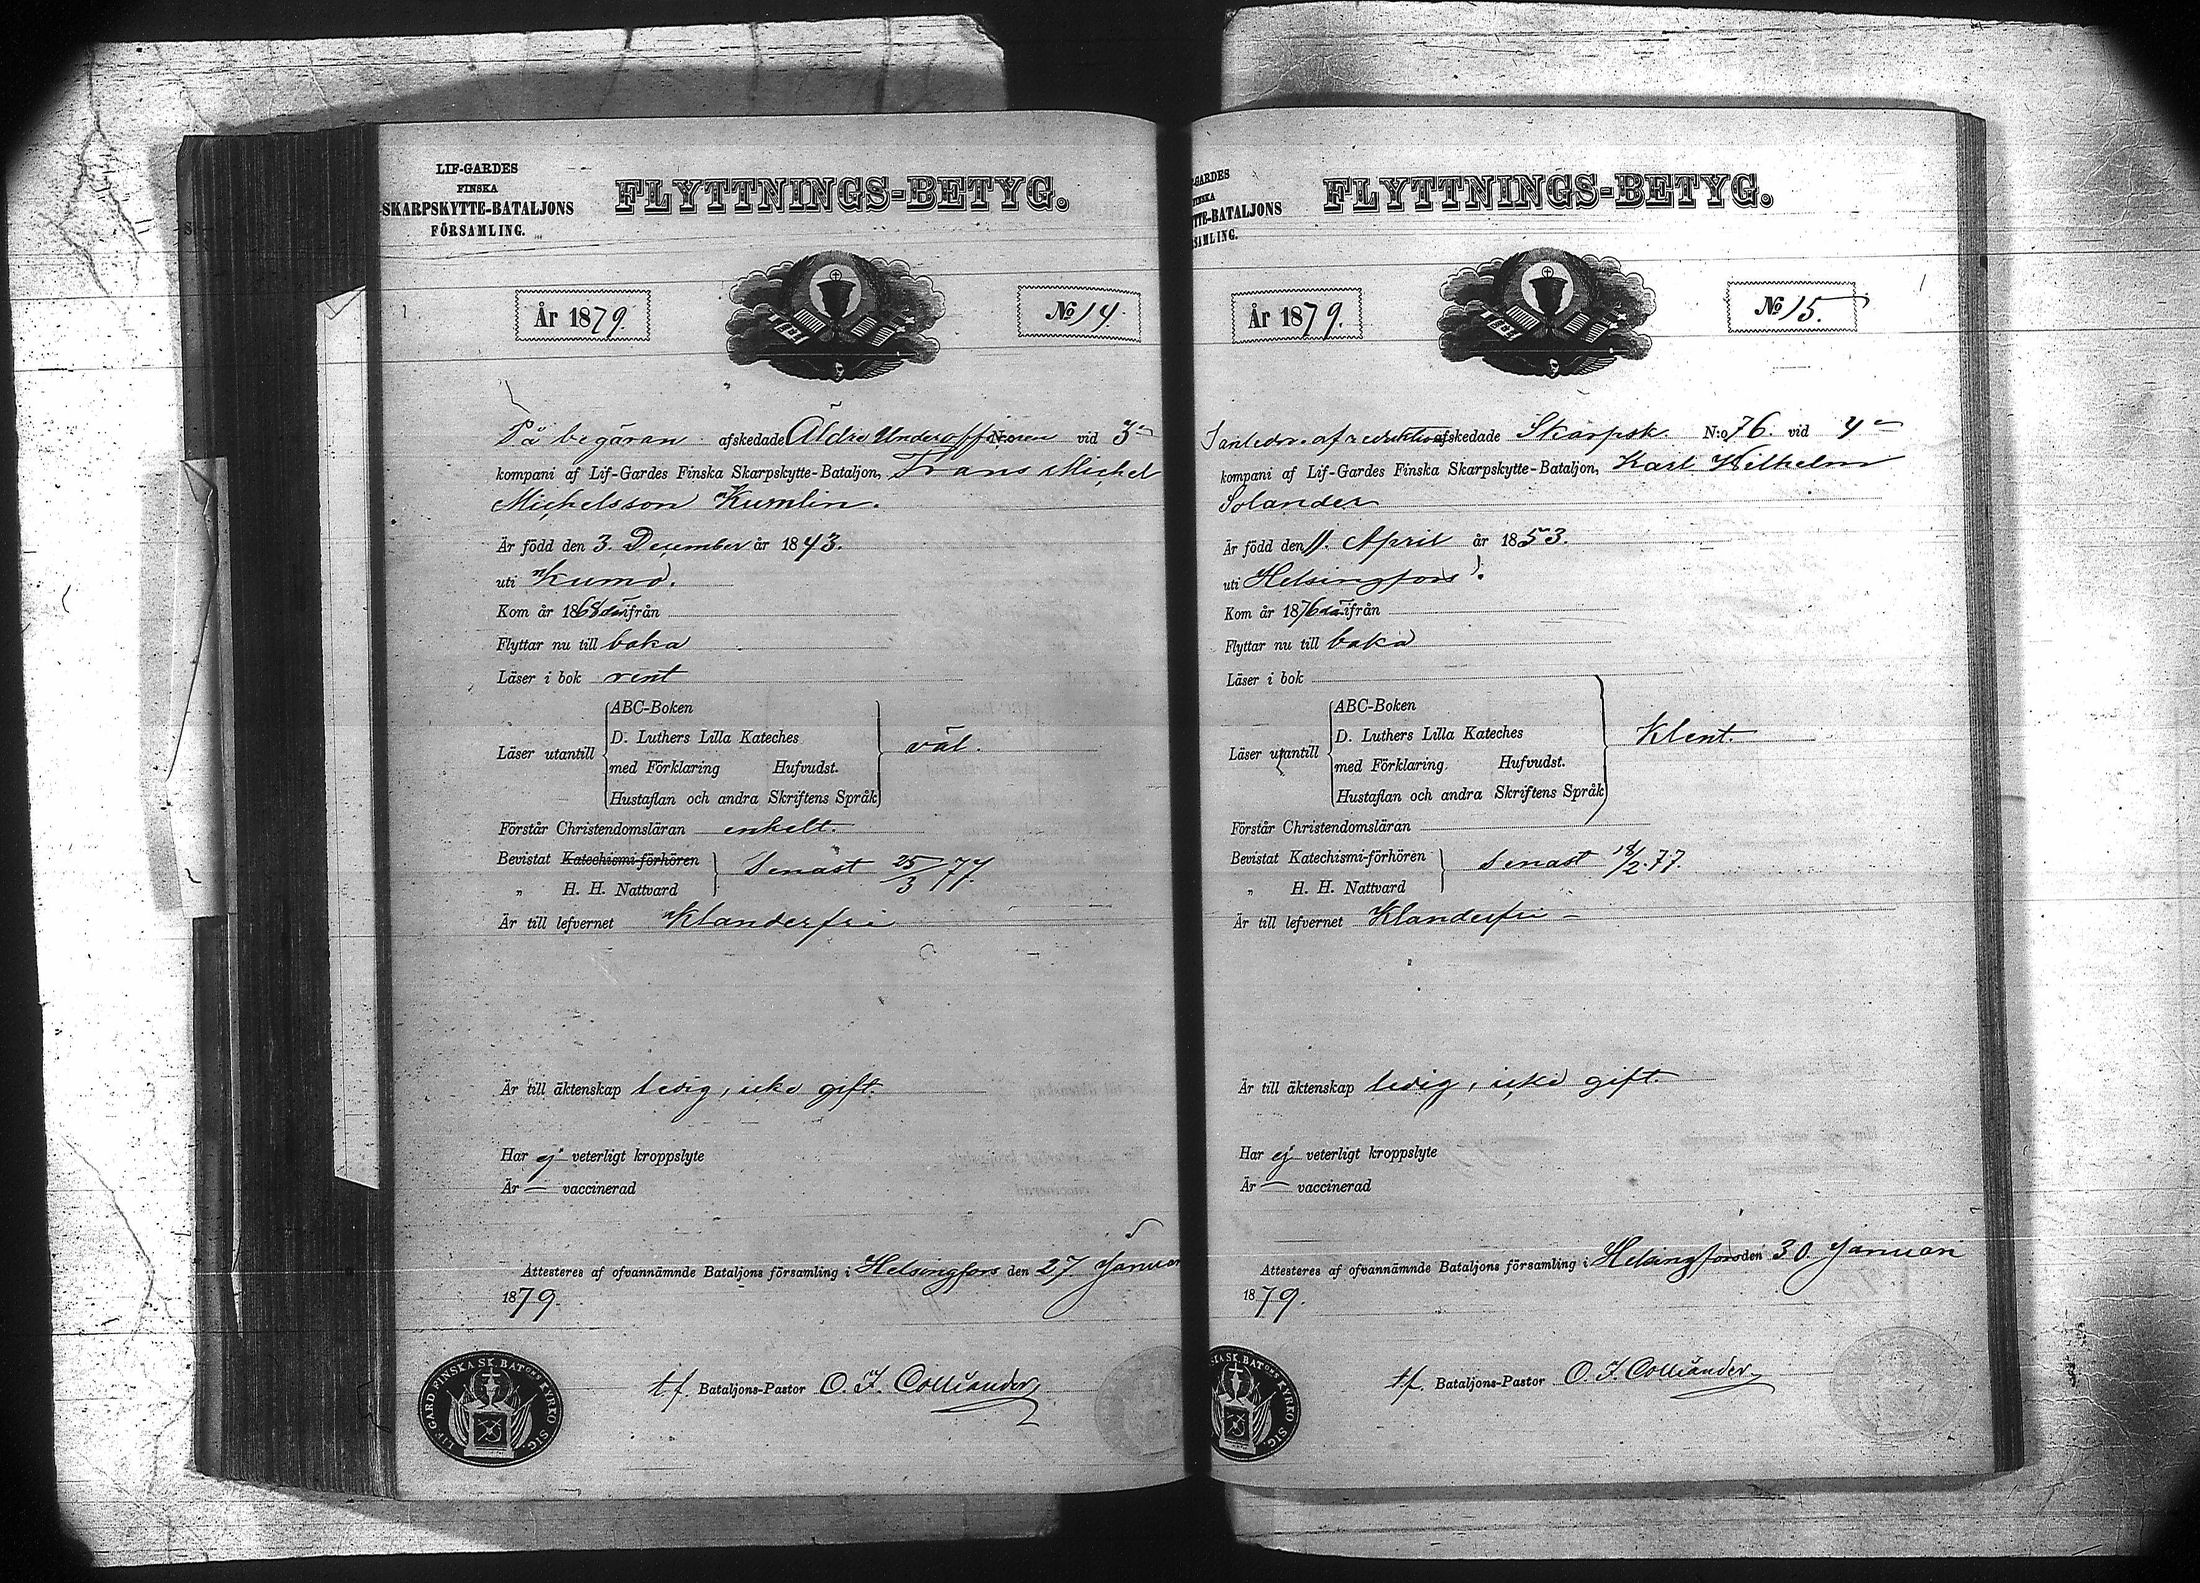 LIF-GARDES
FINSKA
SKARPSKYTTE-BATALJONS
FÖRSAMLING.
FLYTTNINGS-BETYG.
År 1879.
No 14.
På begäran afskedade Äldre Underofficeren vid 3:e
kompani af Lif-Gardes Finska Skarpskytte-Bataljon, Frans Michel
Michelsson Kumlin.
Är född den 3. December år 1843.
uti Kumo.
Kom år 1868 därifrån
Flyttar nu till baka
Läser i bok rent
ABC-Boken
D. Luthers Lilla Kateches
Läser utantill
med Förklaring Hufvudst.
väl.
Hustaflan och andra Skriftens Språk
Förstår Christendomsläran enkelt.
Bevistat Katechismi-förhören
" H. H. Nattvard
Senast 25/3 77.
Är till lefvernet Klanderfri
Är till äktenskap ledig, icke gift.
Har ej veterligt kroppslyte
Är — vaccinerad
Attesteres af ofvannämnde Bataljons församling i Helsingfors den 27 Januar
1879.
t.f. Bataljons-Pastor O. I. Colliander
LIF GARD FINSKA SK. BATons KYRKO SIG.
-GARDES
SKA
TTE-BATALJONS
SAMLING.
FLYTTNINGS-BETYG.
År 1879.
No 15.
I anledn. af reduktion afskedade Skarpsk. N:o 76. vid 4:e
kompani af Lif-Gardes Finska Skarpskytte-Bataljon, Karl Wilhelm
Solander
Är född den 11. April år 1853.
uti Helsingfors.
Kom år 1876 därifrån
Flyttar nu till baka
Läser i bok
ABC-Boken
D. Luthers Lilla Kateches
Läser utantill
med Förklaring Hufvudst.
Klent.
Hustaflan och andra Skriftens Språk
Förstår Christendomsläran
Bevistat Katechismi-förhören
" H. H. Nattvard
Senast 18/2 77.
Är till lefvernet Klanderfri —
Är till äktenskap ledig, icke gift.
Har ej veterligt kroppslyte
Är — vaccinerad
Attesteres af ofvannämnde Bataljons församling i Helsingfors den 30. Januari
1879.
t.f. Bataljons-Pastor O. I. Colliander
SKA SK. BATons KYRKO SIG.